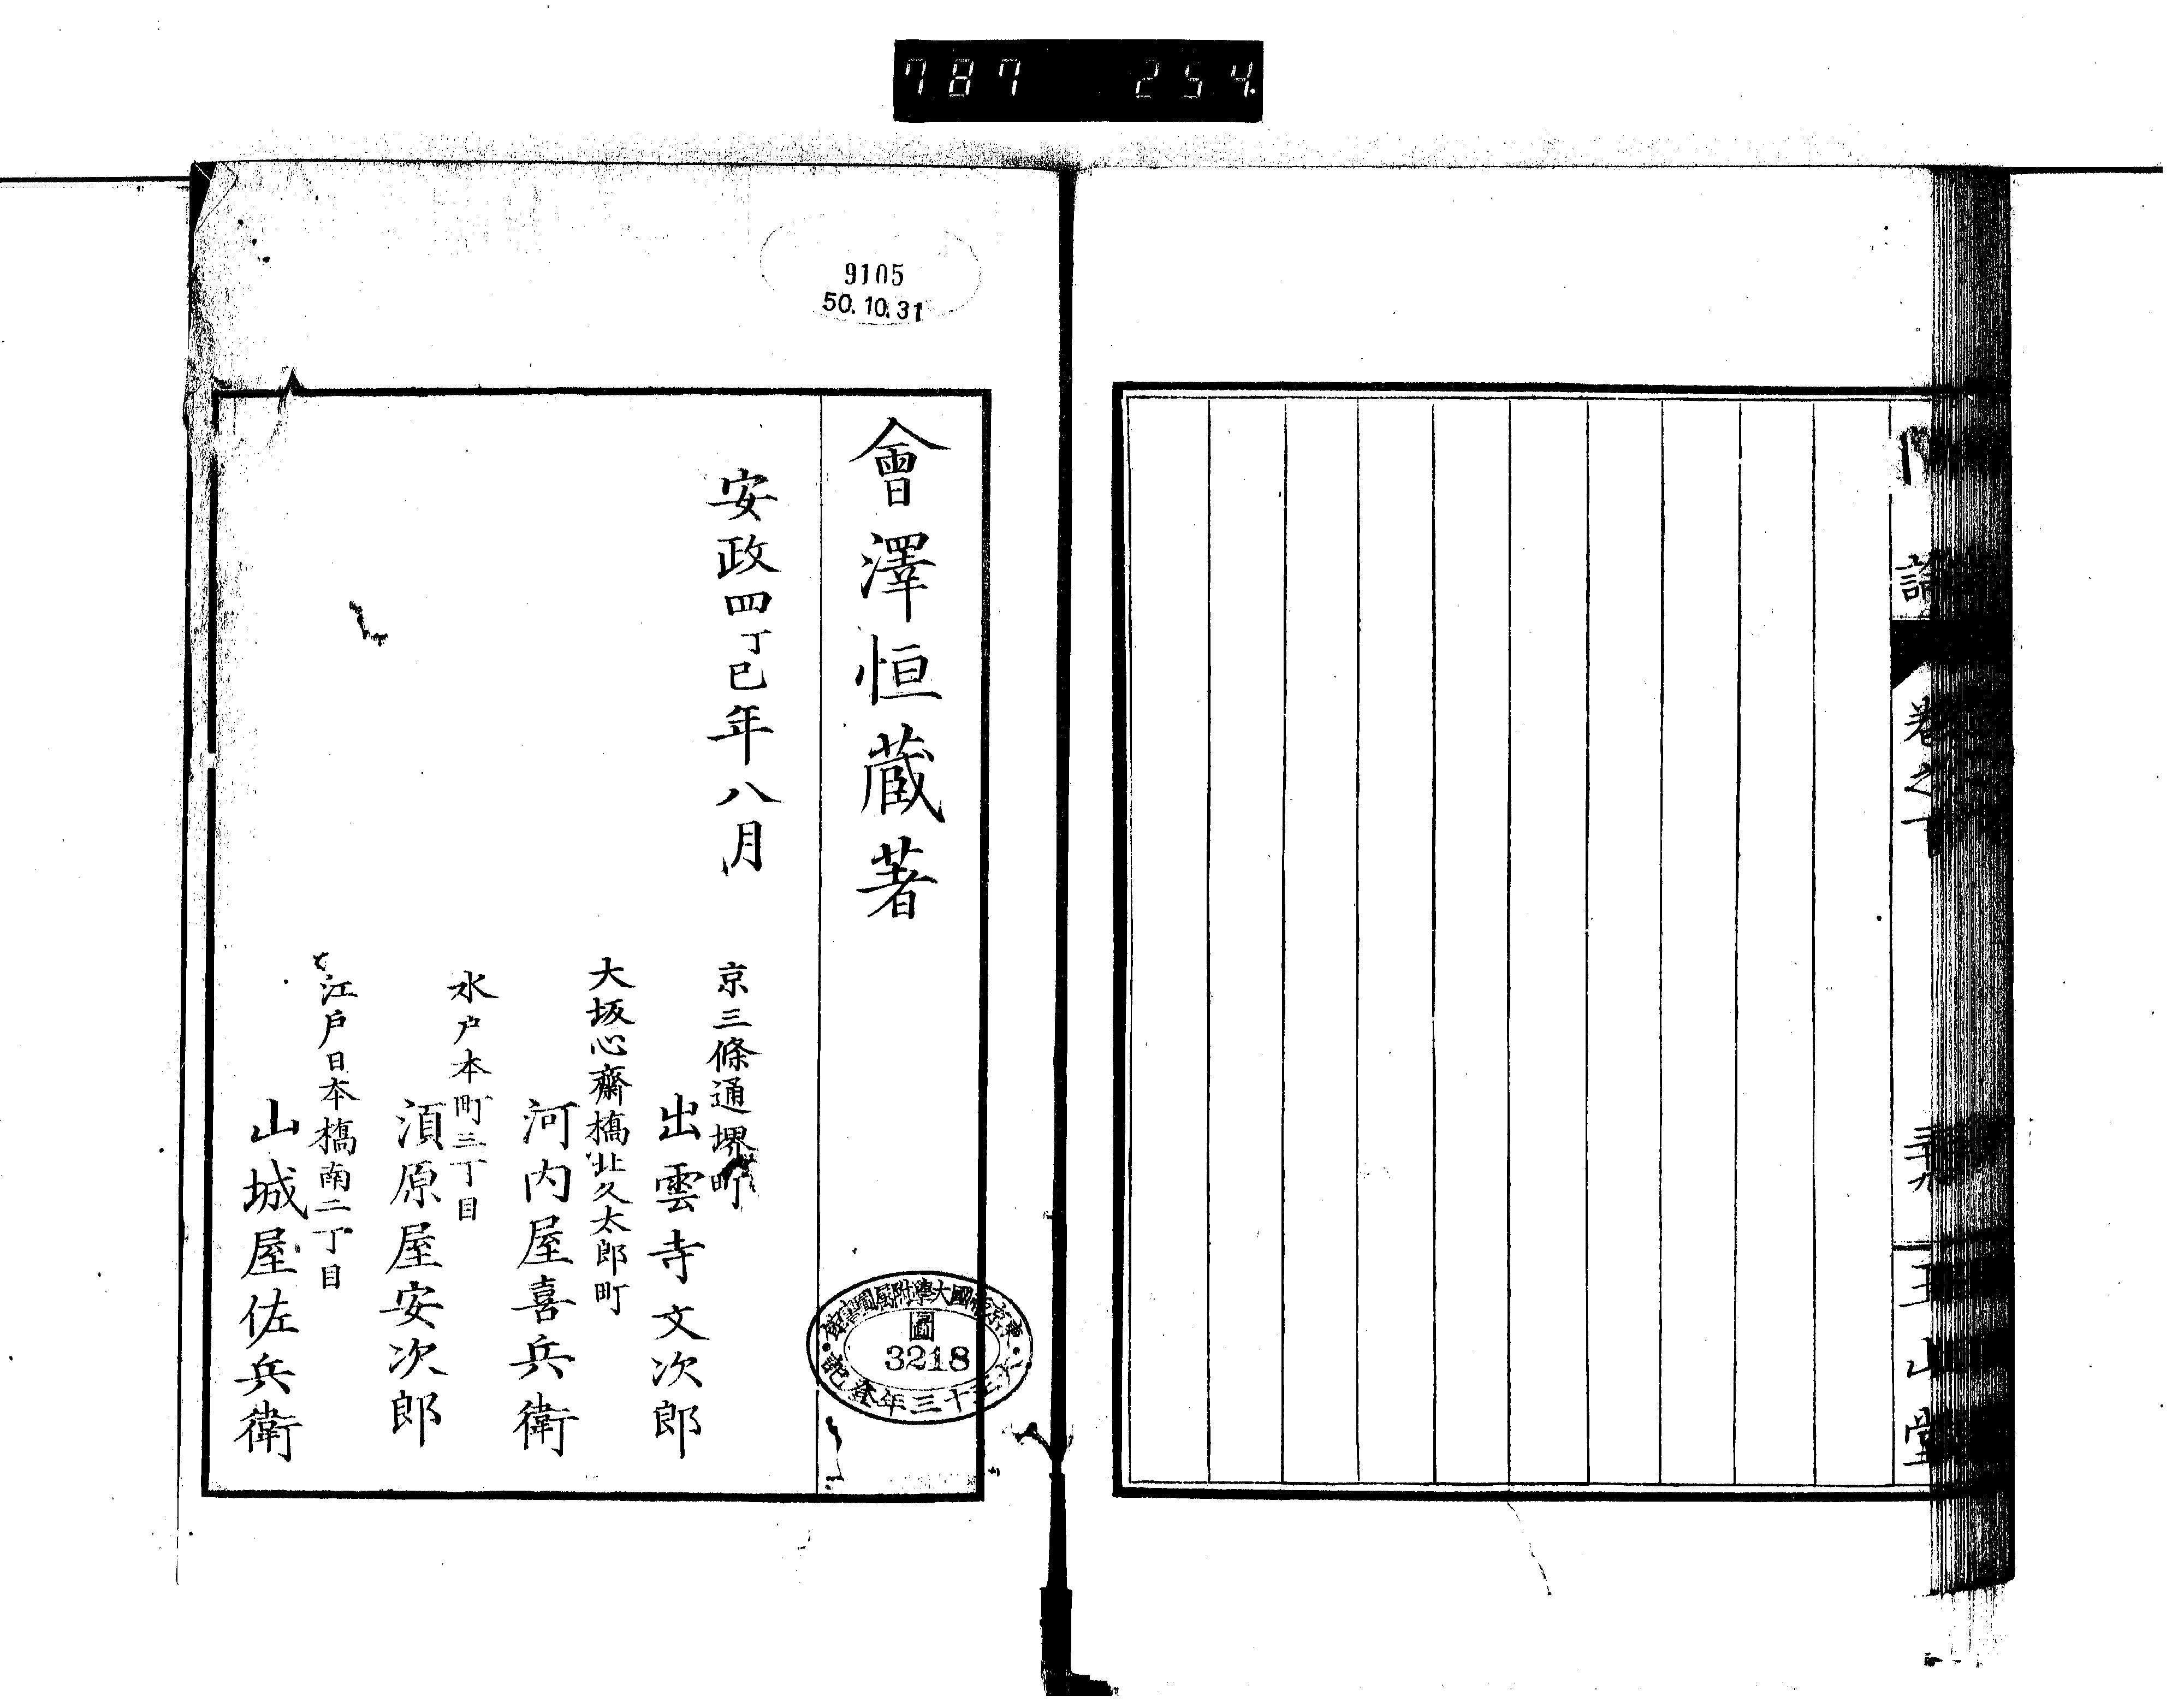 787 254
卷之下
玉山堂
9105
50.10.31
會澤恒蔵著
安政四丁巳年八月
京三條通堺町
出雲寺文次郎
大坂心齋橋北久太郎町
河内屋喜兵衛
水户本町三丁目
須原屋安次郎
江戸日本橋南二丁目
山城屋佐兵衛
東京帝國大學附屬圖書館
圖
3218
大正十三年査記